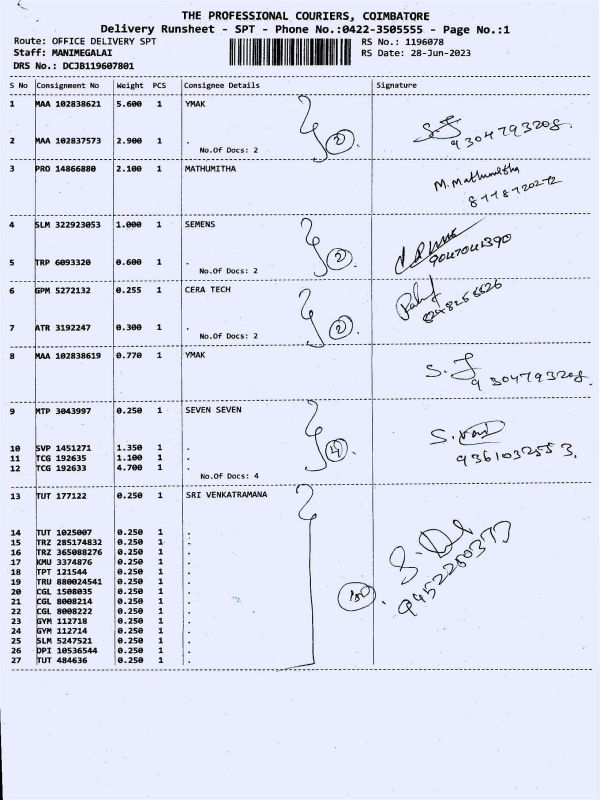 THE PROFESSIONAL COURIERS, COIMBATORE
Delivery Runsheet - SPT - Phone No.:0422-3505555 - Page No.:1
Route: OFFICE DELIVERY SPT RS No.: 1196078
Staff: MANIMEGALAI RS Date: 28-Jun-2023
DRS No.: DCJB119607801
S No Consignment No Weight PCS Consignee Details Signature
1 MAA 102838621 5.600 1 YMAK
2 MAA 102837573 2.900 1 .
No.Of Docs: 2 2
9304793208.
3 PRO 14866880 2.100 1 MATHUMITHA
M. Mathumitha
8778720272
4 SLM 322923053 1.000 1 SEMENS
5 TRP 6093320 0.600 1 .
No.Of Docs: 2 2
9047041390
6 GPM 5272132 0.255 1 CERA TECH
7 ATR 3192247 0.300 1 .
No.Of Docs: 2 2
8 MAA 102838619 0.770 1 YMAK
9304793208.
9 MTP 3043997 0.250 1 SEVEN SEVEN
10 SVP 1451271 1.350 1 .
11 TCG 192635 1.100 1 .
12 TCG 192633 4.700 1 .
No.Of Docs: 4 4
9361032553.
13 TUT 177122 0.250 1 SRI VENKATRAMANA
14 TUT 1025007 0.250 1 .
15 TRZ 285174832 0.250 1 .
16 TRZ 365088276 0.250 1 .
17 KMU 3374876 0.250 1 .
18 TPT 121544 0.250 1 .
19 TRU 880024541 0.250 1 .
20 CGL 1508035 0.250 1 .
21 CGL 8008214 0.250 1 .
22 CGL 8008222 0.250 1 .
23 GYM 112718 0.250 1 .
24 GYM 112714 0.250 1 .
25 SLM 5247521 0.250 1 .
26 DPI 10536544 0.250 1 .
27 TUT 484636 0.250 1 .